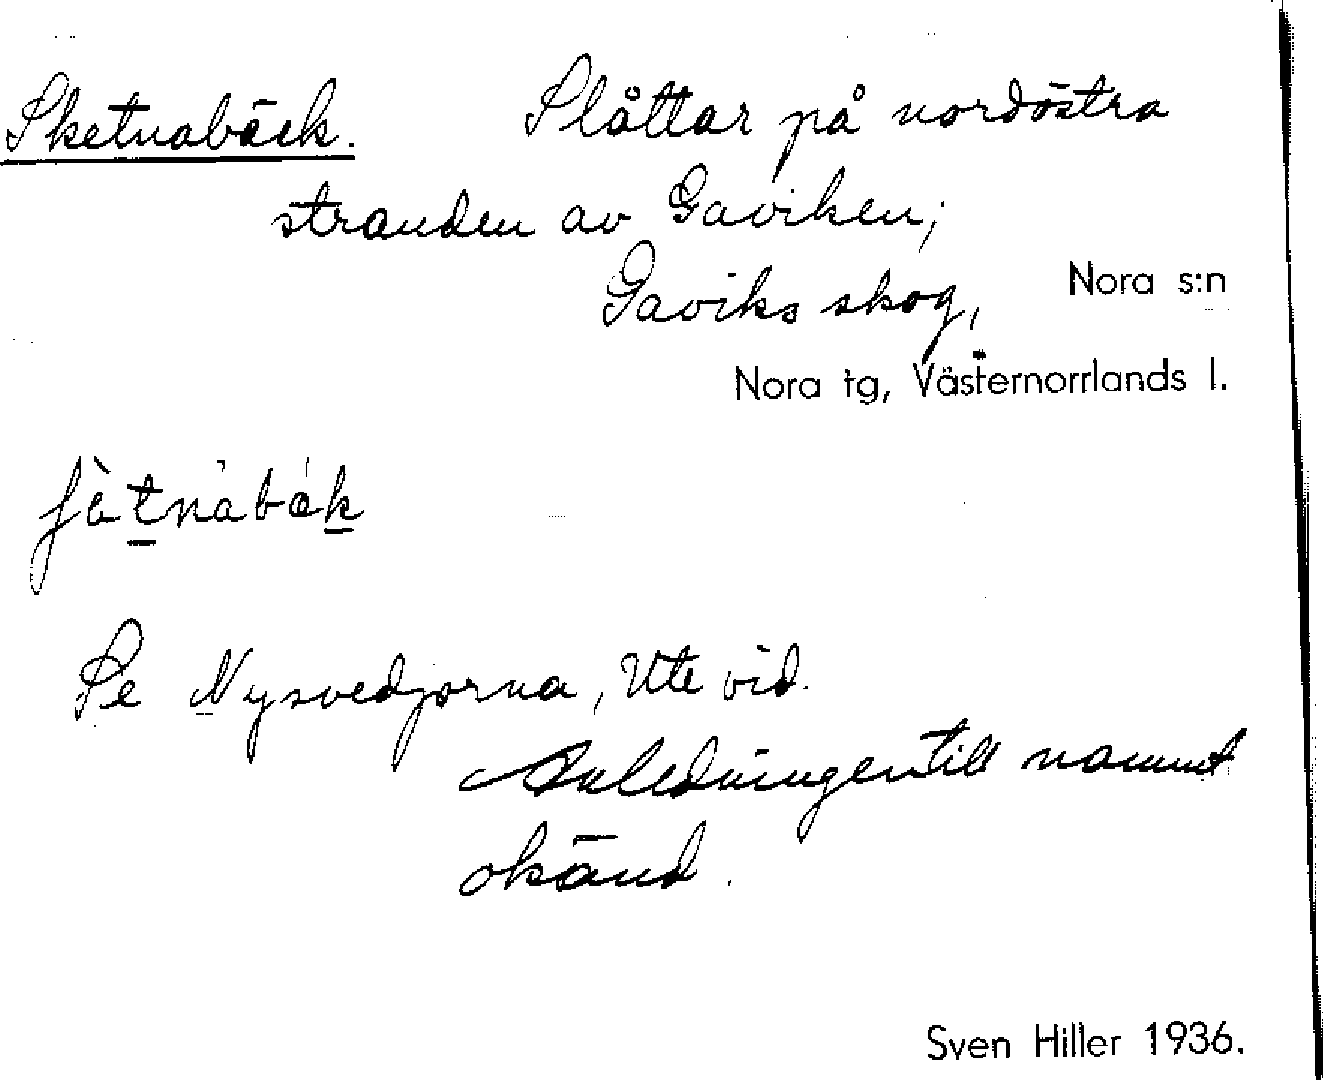 Sketnabäck. Slåttar på nordöstra
stranden av Gaviken;
Gaviks skog, Nora s:n
Nora tg, Västernorrlands l.
ʃètnabäk
Se Nysvedjorna, Ute vid.
Anledningen till namnet
okänd.
Sven Hiller 1936.